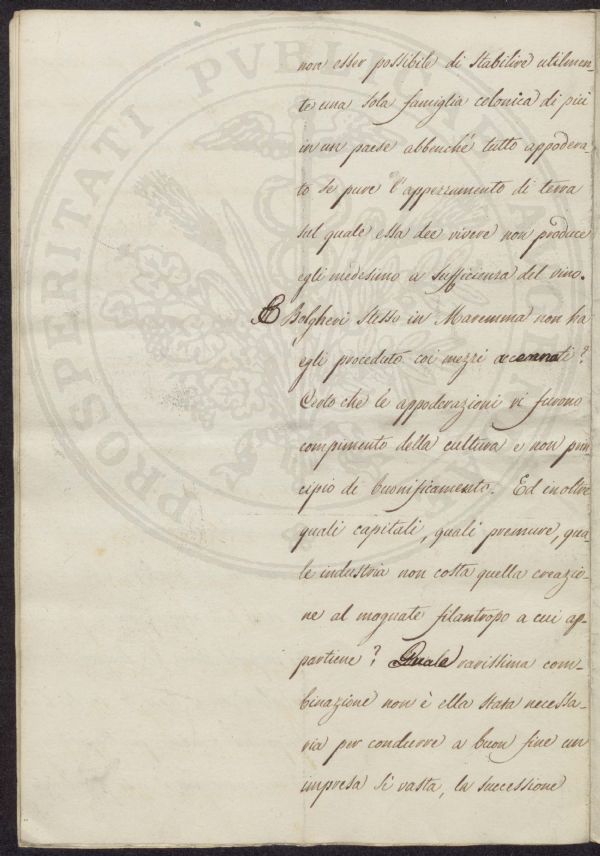 non esser possibile di stabilire utilmen-
te una sola famiglia colonica di più
in un paese abbenché tutto appodera-
to se pure l'appezzamento di terra
sul quale essa dee vivere non produce
egli medesimo a sufficienza del vino.
E Bolgheri stesso in Maremma non ha
egli proceduto coi mezzi accennati?
Certo che le appoderazioni vi furono
compimento della cultura e non prin-
cipio di buonificamento. Ed inoltre
quali capitali, quali premure, qua-
le industria non costa quella creazio-
ne al magnate filantropo a cui ap-
partiene? Quale rarissima com-
binazione non è ella stata necessa-
ria per condurre a buon fine un
impresa sì vasta, la successione
PROSPERITATI PVBLICAE AVGENDAE